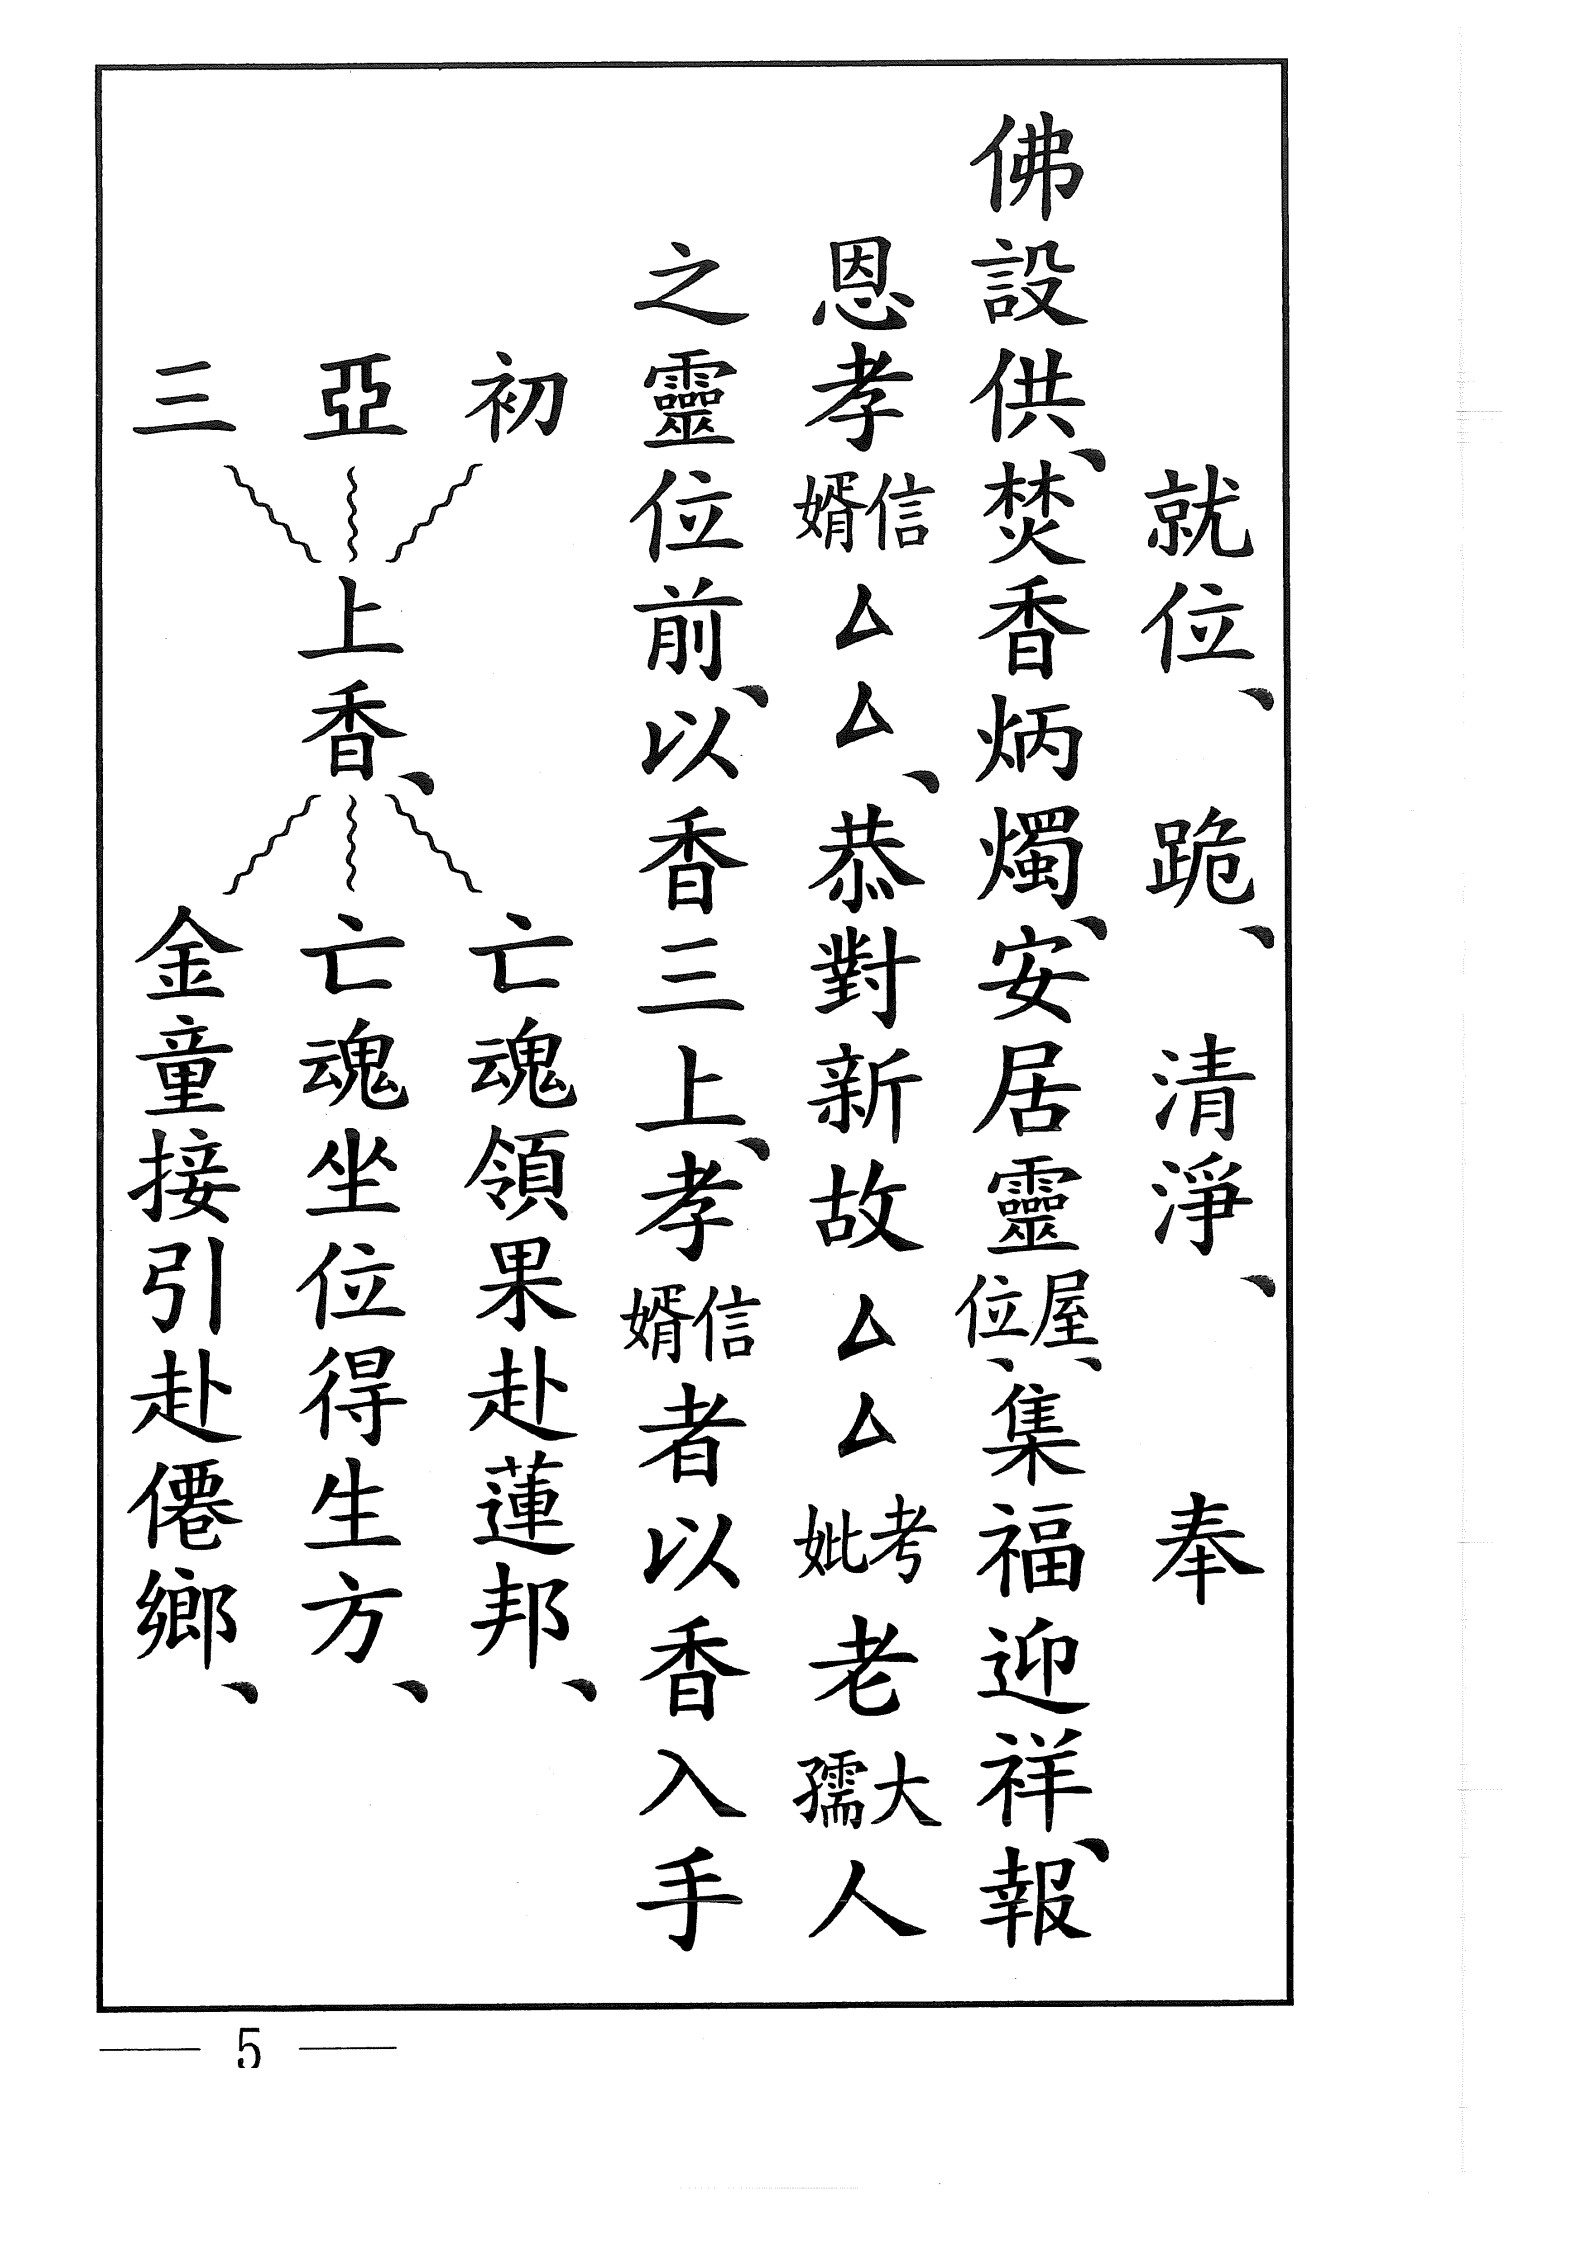 就位、跪、清淨、奉
佛設供、焚香炳燭、安居靈屋位、集福迎祥、報
恩孝信婿△△、恭對新故△△考妣老大孺人
之靈位前、以香三上、孝信婿者以香入手
初
亞
三
上香、
亡魂領果赴蓮邦、
亡魂坐位得生方、
金童接引赴僊鄉、
5